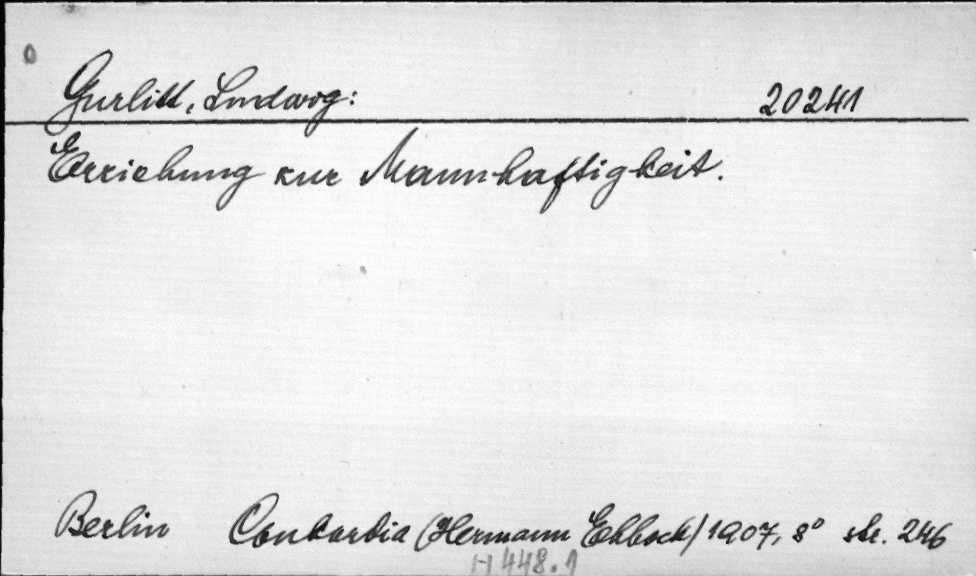 Gurlitt, Ludwig: 20241
Erziehung zur Mannhaftigkeit.
Berlin Concordia (Hermann Ehbock) 1907, 8° str. 246
H 448.1